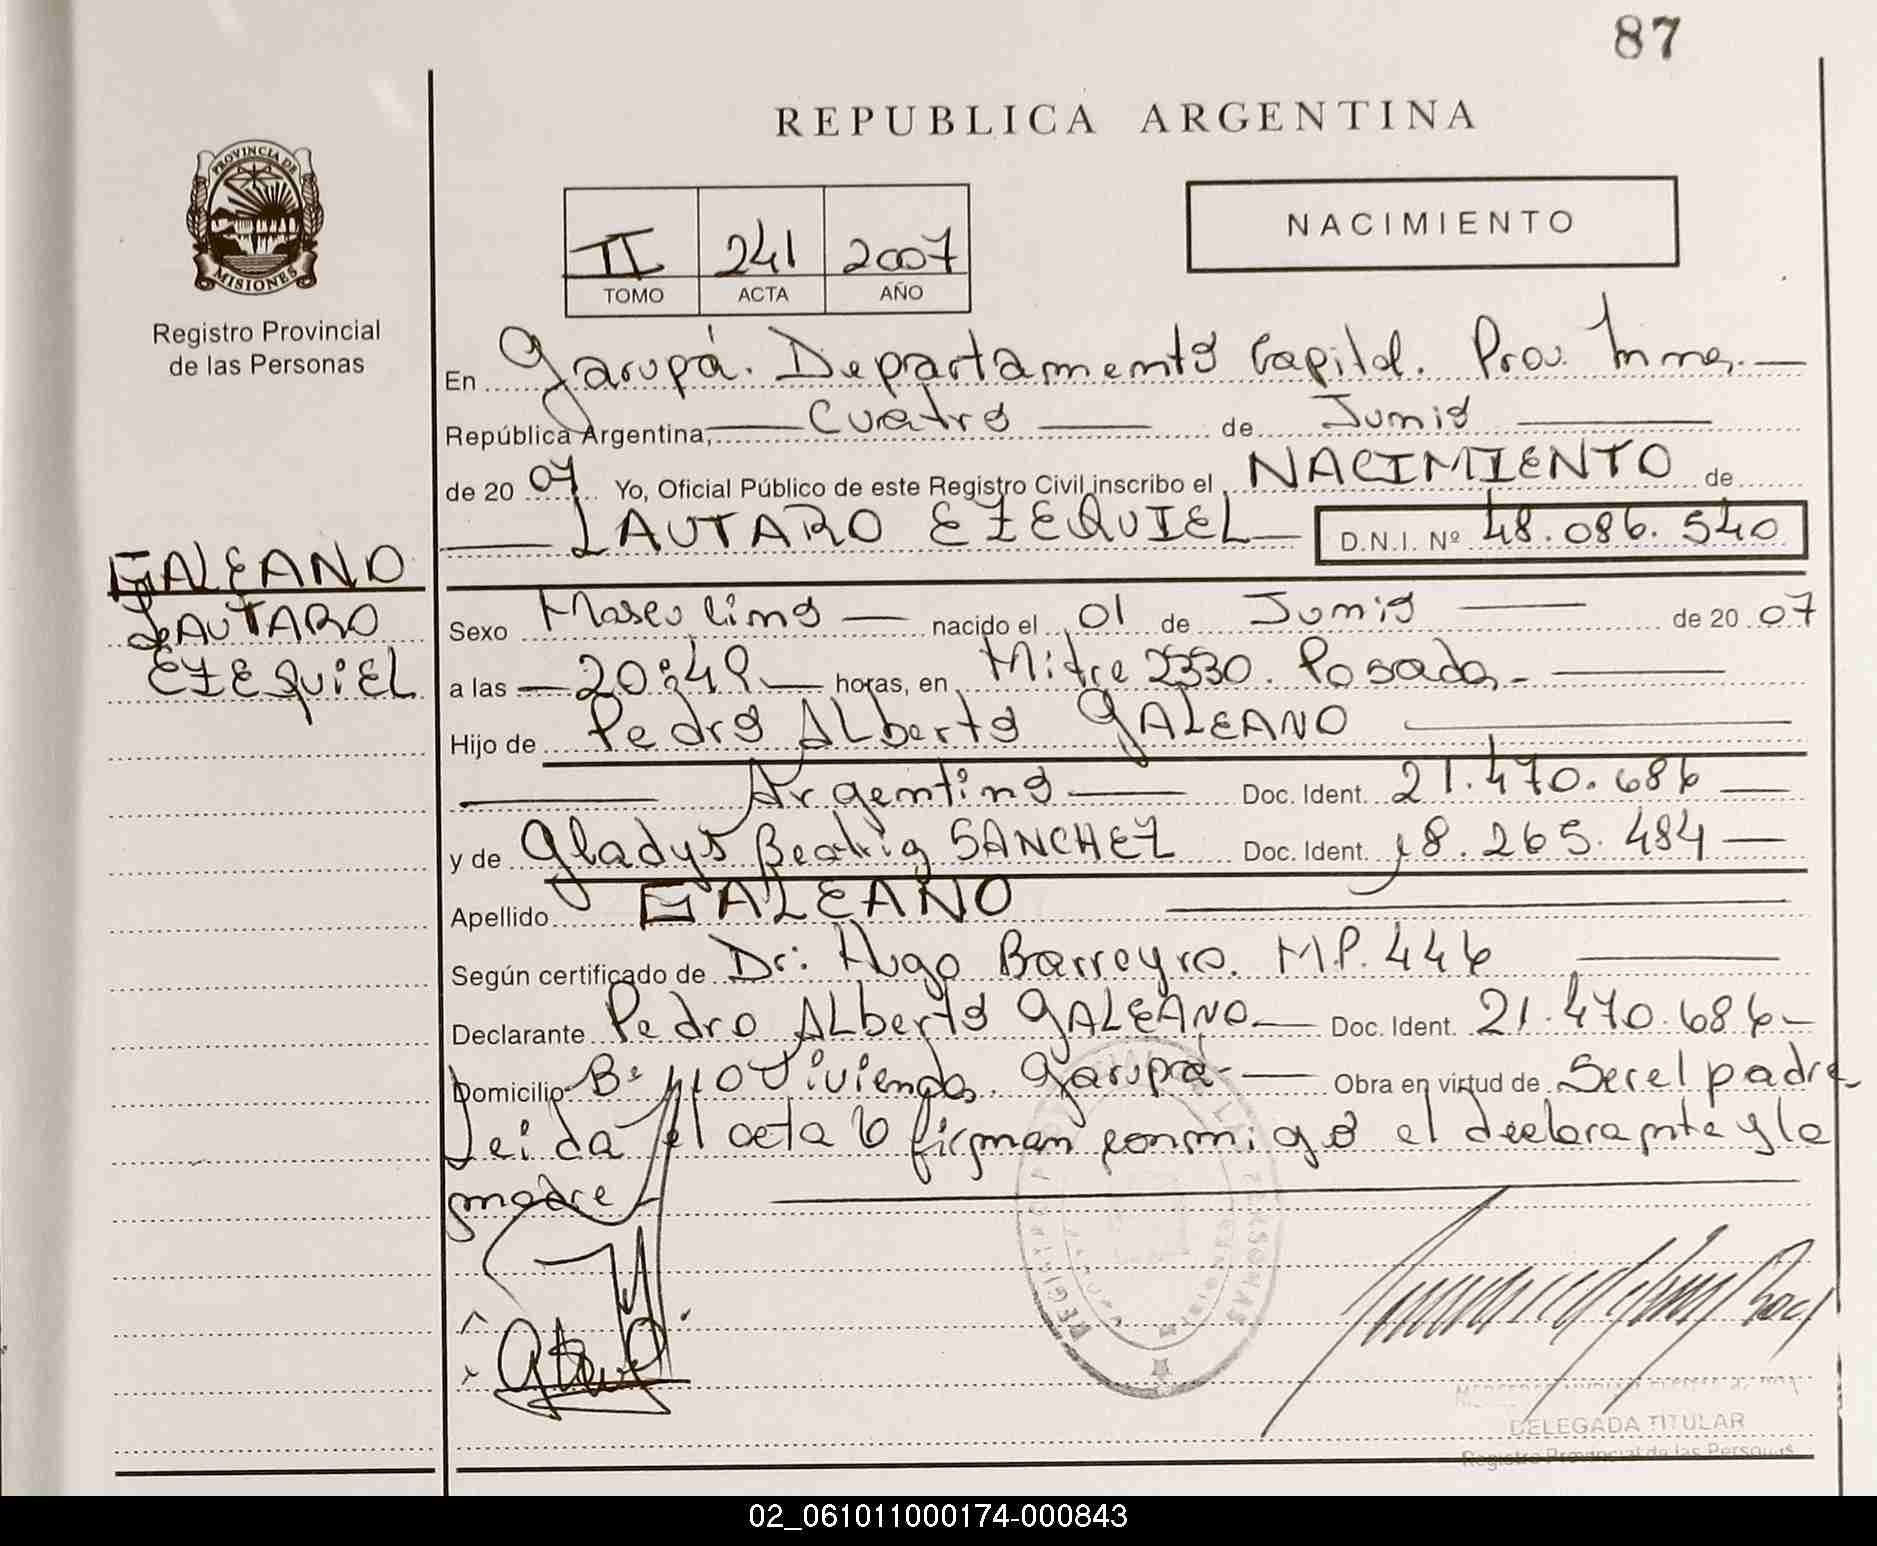 87
REPUBLICA ARGENTINA
PROVINCIA DE
MISIONES
Registro Provincial
de las Personas
NACIMIENTO
II 241 2007
TOMO ACTA AÑO
En Garupá. Departamento Capital. Prov. Mnes.
República Argentina, Cuatro de Junio
de 20 07 Yo, Oficial Público de este Registro Civil inscribo el NACIMIENTO de
LAUTARO EZEQUIEL D.N.I. Nº 48.086.540
GALEANO
LAUTARO
EZEQUIEL
Sexo Masculino nacido el 01 de Junio de 20 07
a las 20:49 horas, en Mitre 2330. Posadas
Hijo de Pedro Alberto GALEANO
Argentino Doc. Ident. 21.470.686
y de Gladys Beatriz SANCHEZ Doc. Ident. 18.265.484
Apellido GALEANO
Según certificado de Dr: Hugo Barreyro. M.P. 446
Declarante Pedro Alberto GALEANO Doc. Ident. 21.470.686
Domicilio Bº 110 Viviendas. Garupá Obra en virtud de Ser el padre
Leida el acta la firman conmigo el declarante y la
madre
DELEGADA TITULAR
Registro Provincial de las Personas
02_061011000174-000843